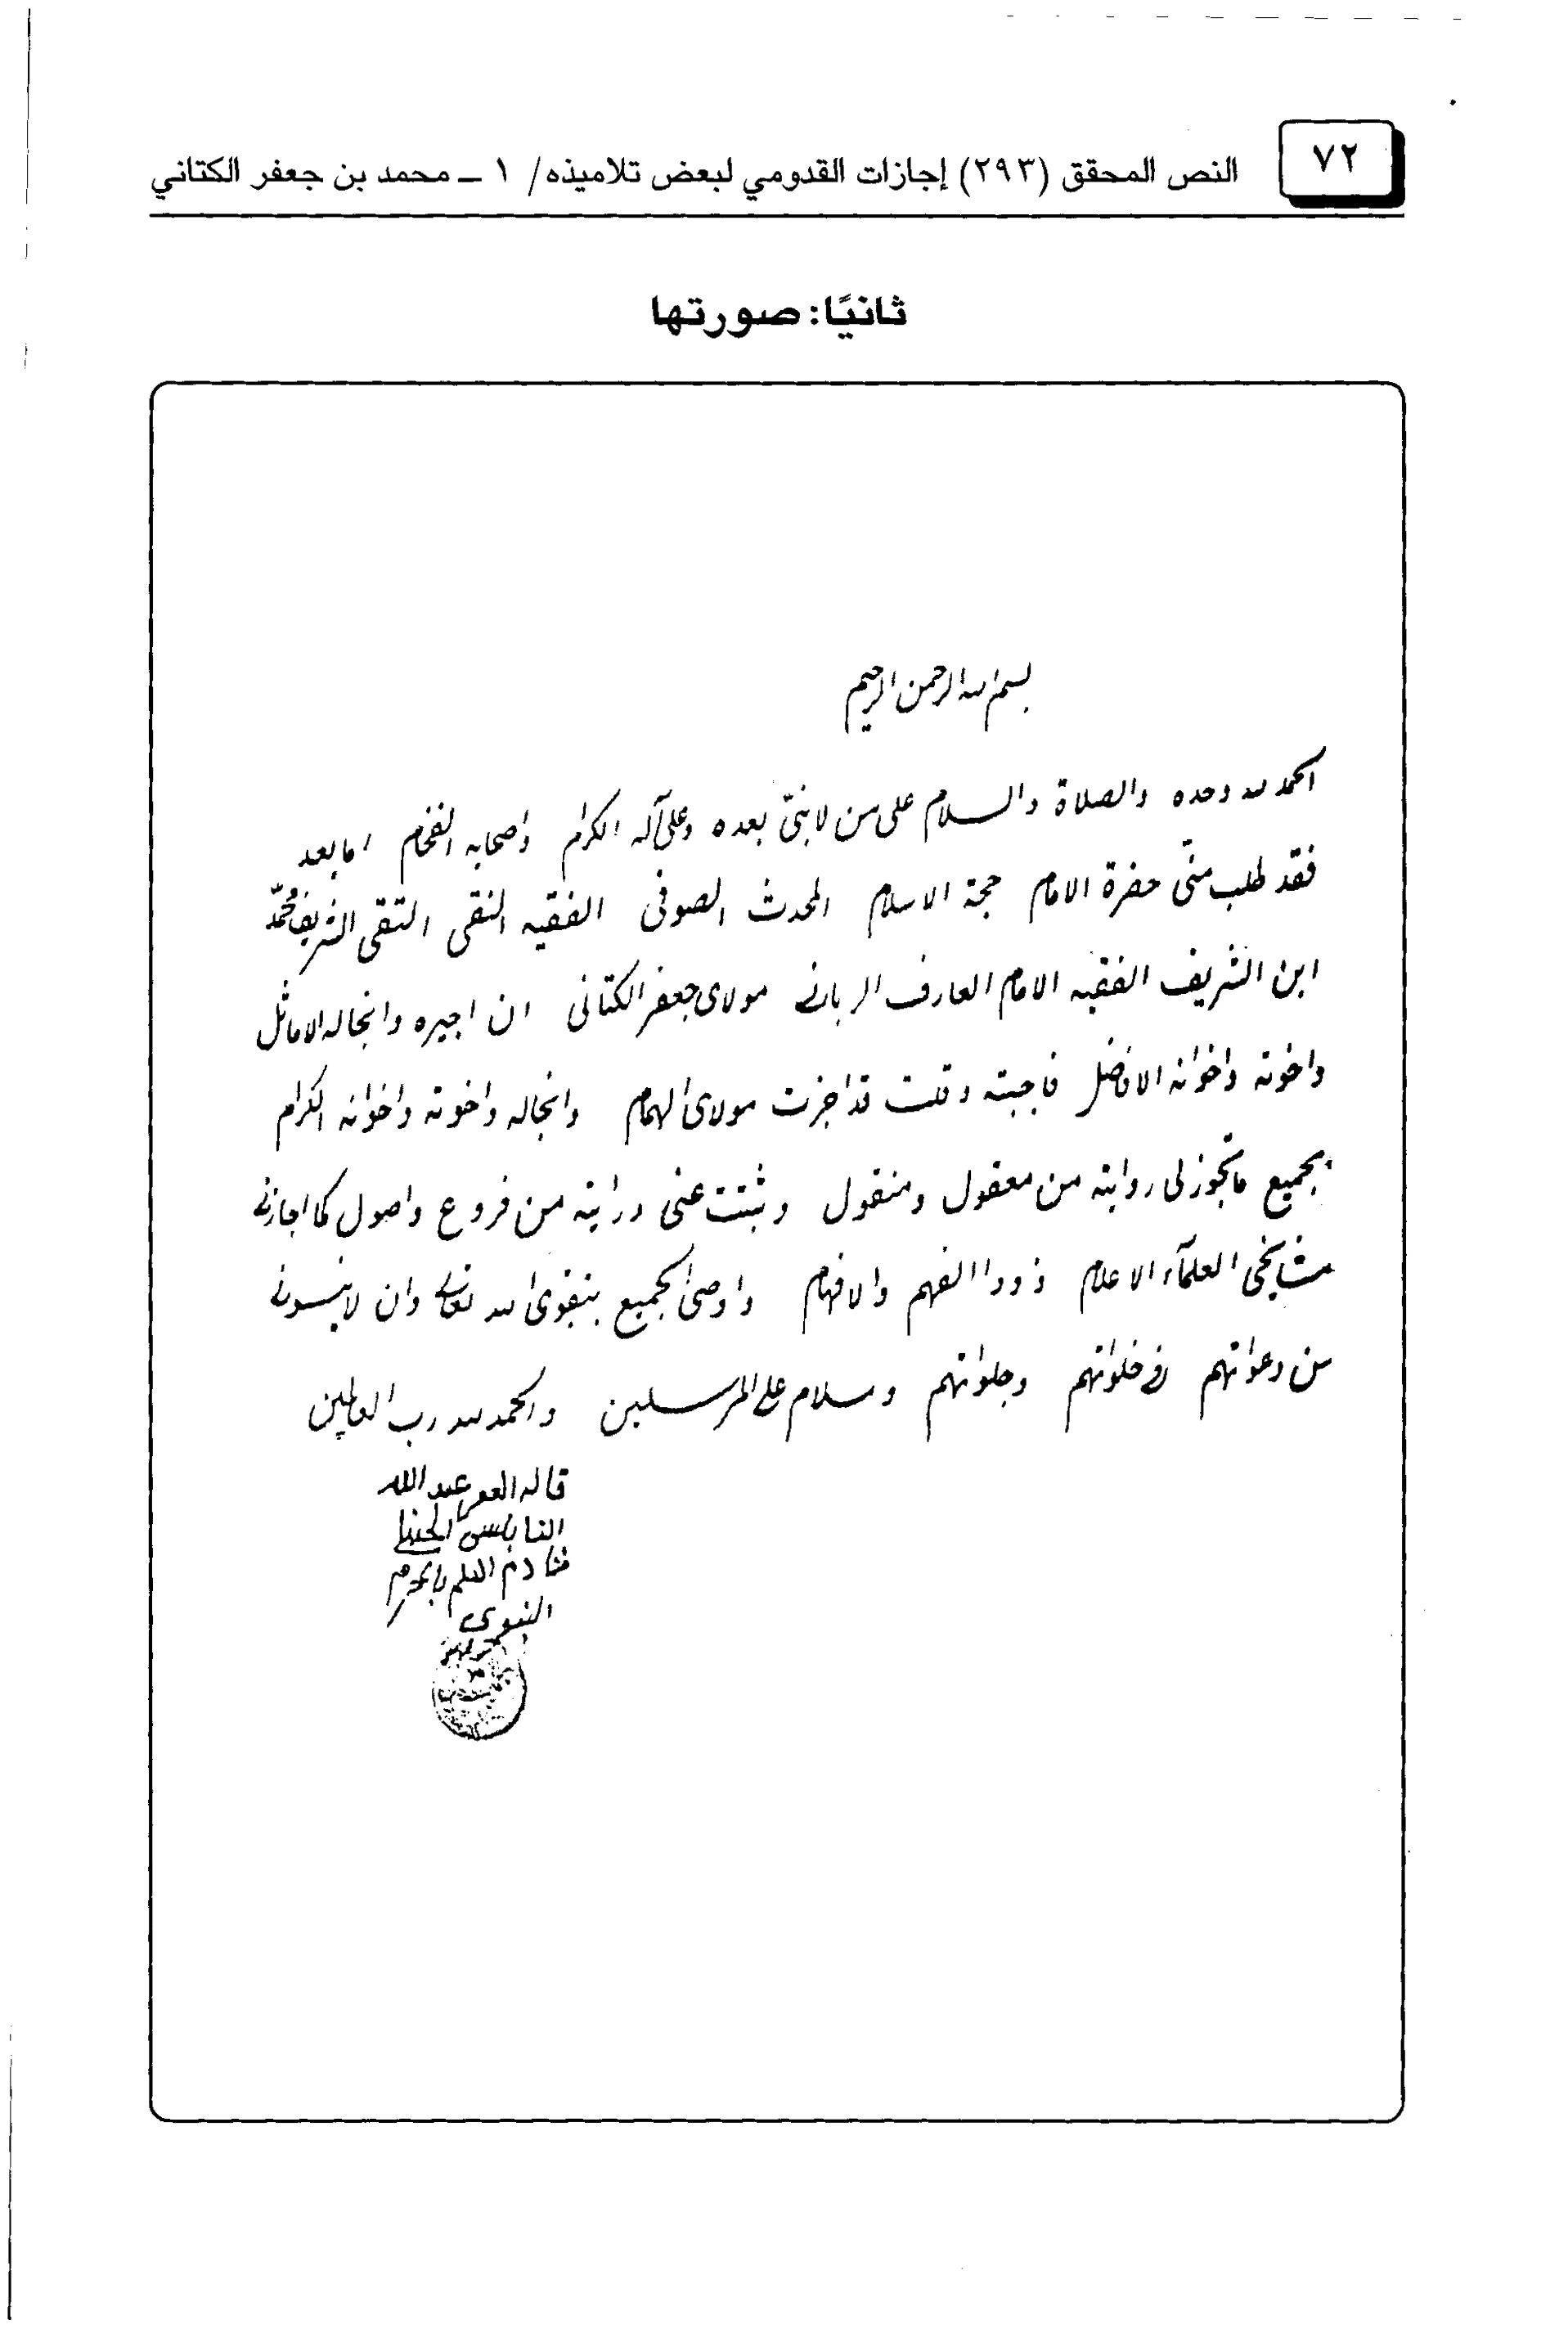 ٧٢
النص المحقق (٢٩٣) إجازات القدومي لبعض تلاميذه/ ١ ــ محمد بن جعفر الكتاني
ثانيًا: صورتها
بسم الله الرحمن الرحيم
الحمد لله وحده والصلاة والسلام على من لا نبىّ بعده وعلى آله الكرام واصحابه الفخام اما بعد
فقد طلب منّى حضرة الامام حجة الاسلام المحدث الصوفى الفقيه النقى التقى الشريف محمّد
ابن الشريف الفقيه الامام العارف الربانى مولاى جعفر الكتانى ان اجيزه وانجاله الاماثل
واخوته واخوانه الافاضل فاجبته وقلت قد اجزت مولاى الهمام وانجاله واخوته واخوانه الكرام
بجميع ما تجوز لى روايته من معقول ومنقول وثبتت عنى درايته من فروع واصول كما اجازنى
مشايخى العلمآء الاعلام ذووا الفهم والافهام واوصى الجميع بتقوى الله تعالى وان لا ينسونى
من دعواتهم فى خلواتهم وجلواتهم وسلام على المرسلين والحمد لله رب العالمين
قاله عبد الله
النابلسى الحنبلى
خادم العلم بالحرم
النبوى